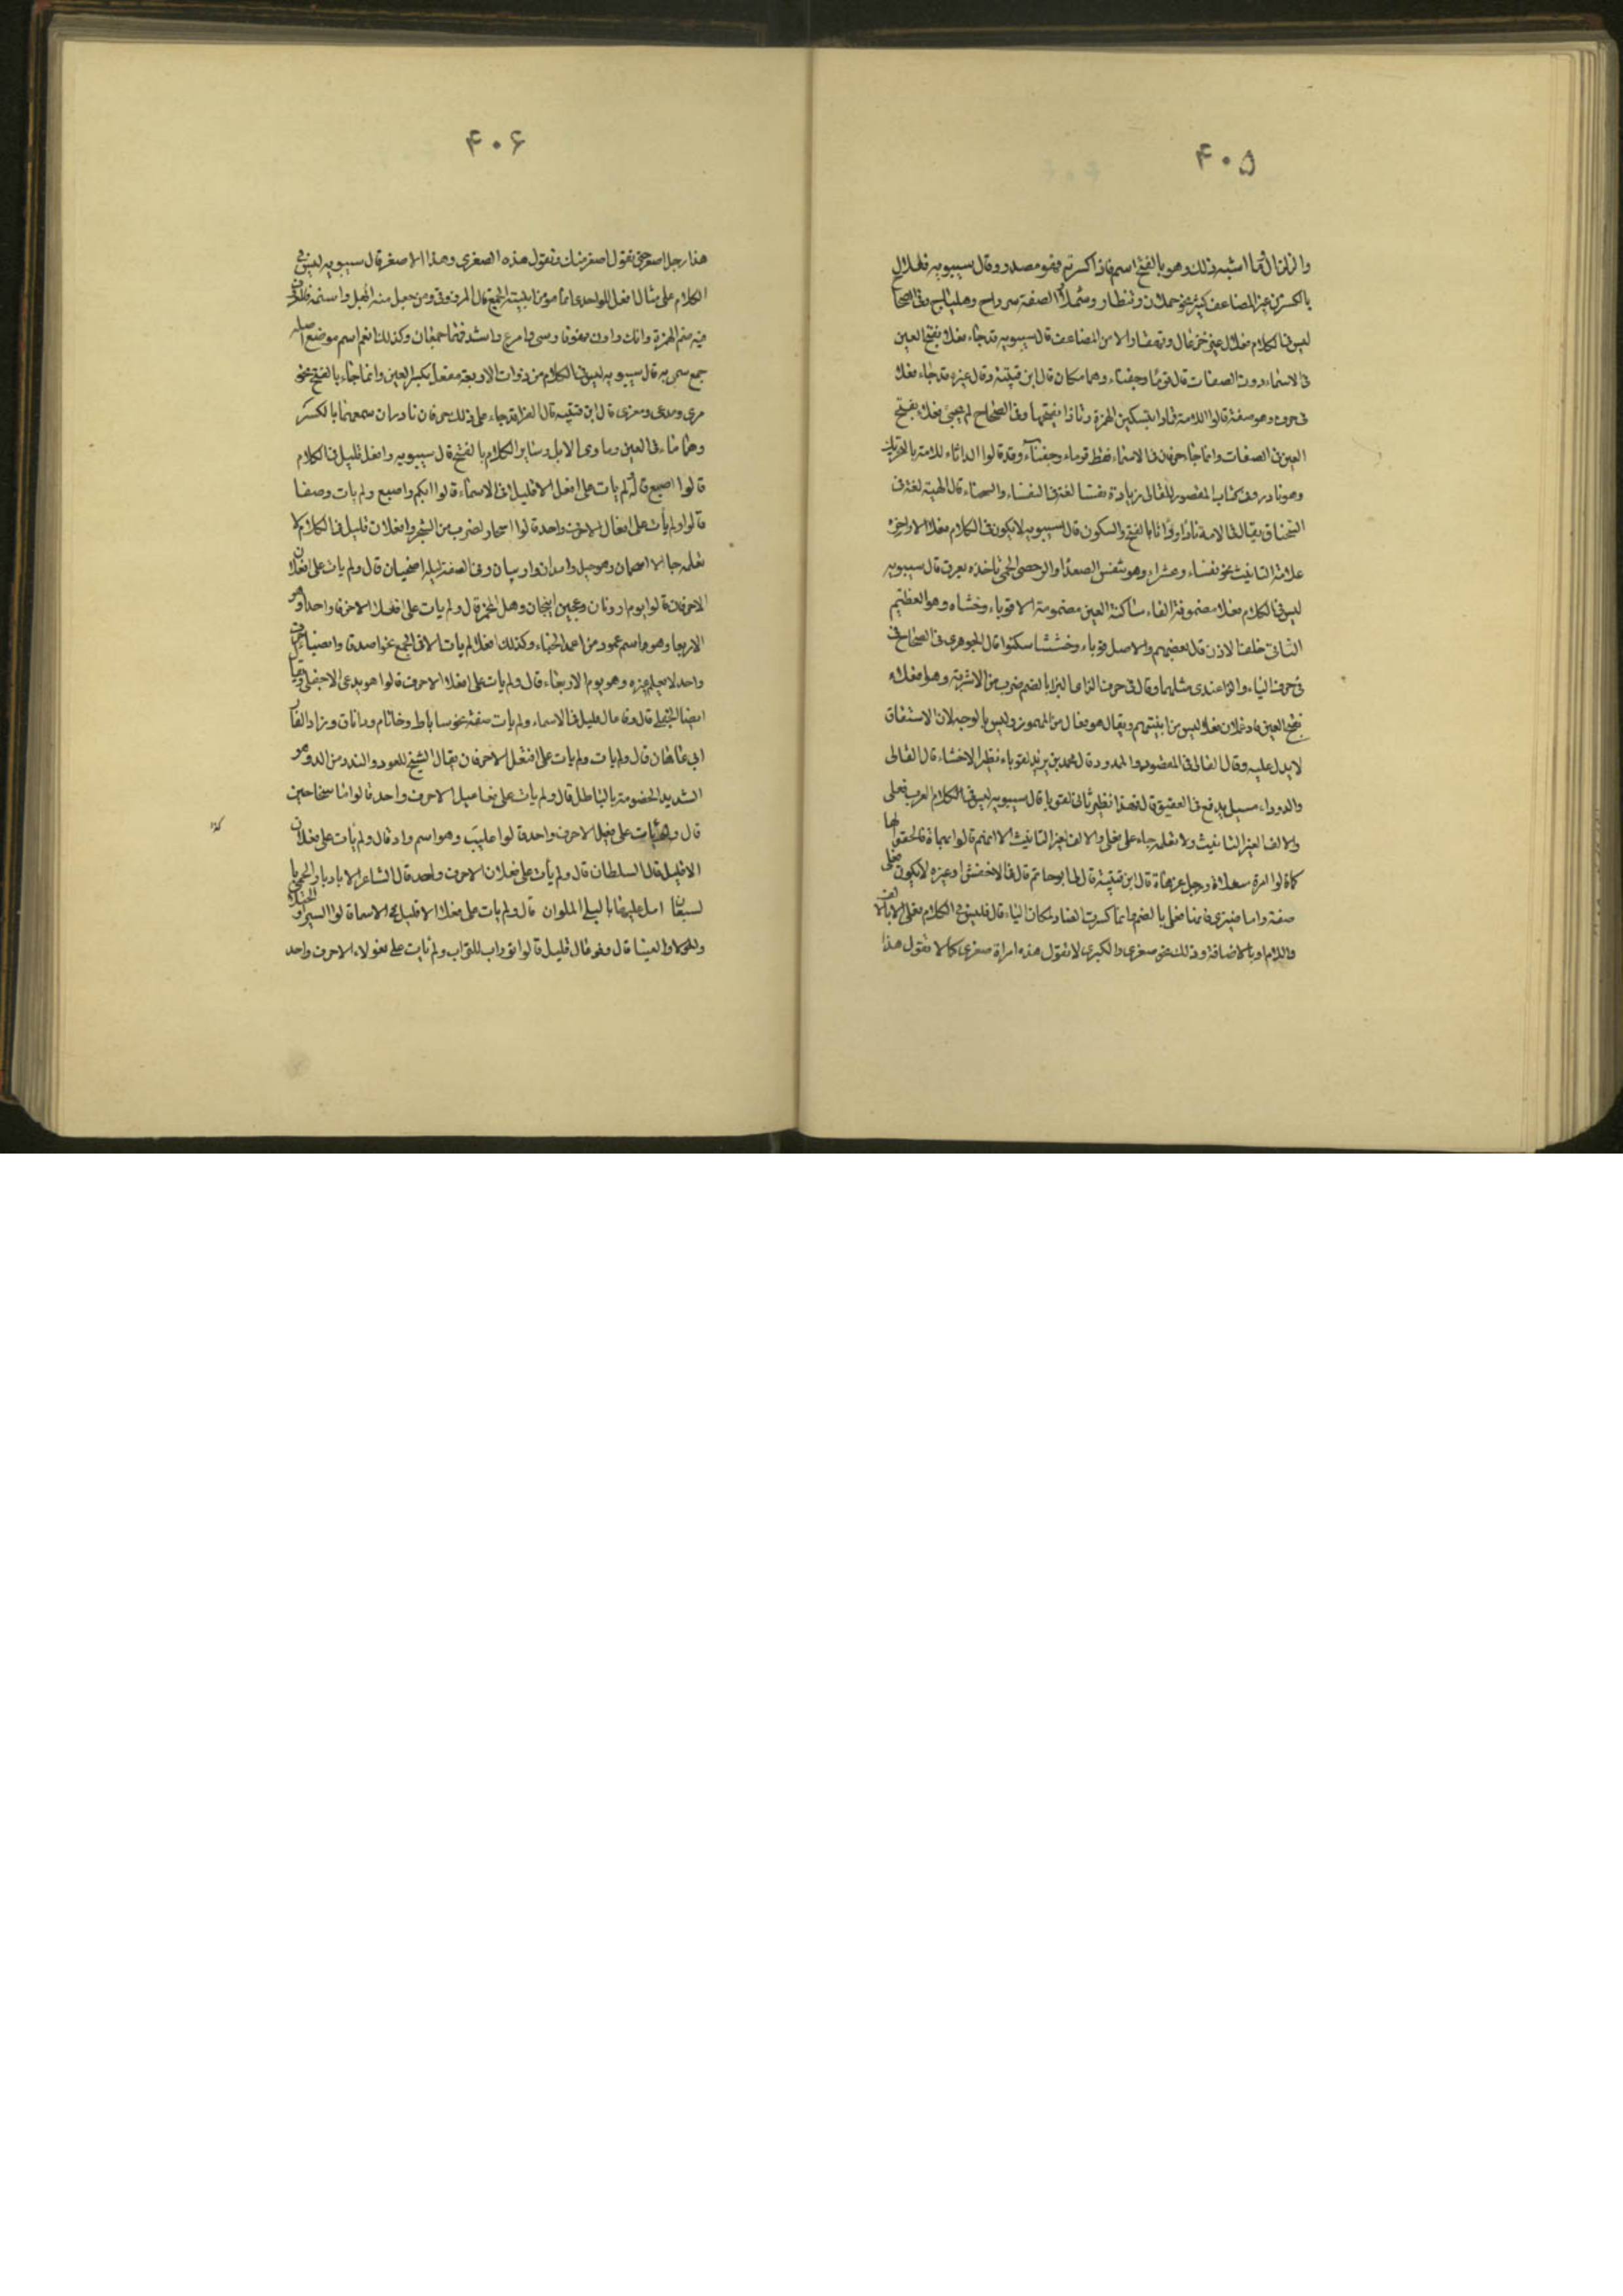 ۴۰۵
والزلزال وما اشبه ذلك وهو بالفتح اسم فاذا كسرته فهو مصدر وقال سيبويه فعلال
بالكسر من غير المضاعف كثير نحو حملاق وقنطار وشملال الصفة سرداح وهلباج وفى الصحا
ليس فى الكلام فعلال غير خزعال وقهقار الا من المضاعف قال سيبويه قد جاء فعلاء بفتح العين
فى الاسماء دون الصفات قال قرماء وجنفاء وهما مكان قال ابن قتيبة وقال غيره قد جاء فعلاء
فى حرف وهو صفة قالوا للامة ثاداء بتسكين الهمزة وثاداء بفتحها وفى الصحاح لم يجئ فعلاء بفتح
العين فى الصفات وانما جاء حرفان فى الاسماء فقط قرماء وجنفاء وقد قالوا الداثاء للامة بالتحريك
وهو نادر وفى كتاب المقصور للقالى زيادة نفساء لغة فى النفساء والسحناء قال الهيه لغة فى
السحناء ويقال فى الامة ثاداء ودأثاء بالفتح والسكون قال سيبويه لا يكون فى الكلام فعلاء الا واخره
علامة التانيث نحو نفساء وعشراء وهو يتنفس الصعداء والرحضى الحمى تاخذه بعرق قال سيبويه
ليس فى الكلام فعلاء مضمومة الفاء ساكنة العين مضمومة الا قوباء وخشاء وهو العظيم
الناتئ خلف الاذن قال بعضهم والاصل قوباء وخششاء سكنوا قال الجوهرى فى الصحاح فى
فى حرف الباء والمزاء عندى مثلهما وقال فى حرف الزا والمزاء بالضم ضرب من الاشربة وهو فعلاء
بفتح العين فادغم لان فعلاء ليس من ابنيتهم ويقال هو فعال من المهموز وليس بالوجه لان الاشتقاق
لا يدل عليه وقال القالى فى المقصور والممدود قال محمد بن يزيد لقوباء نظير الا خشاء قال القالى
والدوداء مسيل يدفع فى العقيق قال فهذا نظير ثانى لقوبا قال سيبويه ليس فى الكلام العرب فعلى
والالف لغير التانيث ولا نعلمه جاء على فعلى والالف لغير التانيث الا انهم قالوا بهماة فالحقوا لها
كما قالوا امرة سعلاة ورجل عزهاة قال ابن قتيبة قال لى ابو حاتم قال فى الاخفش او غيره لا يكون فعلى
صفة واما ضيزى فانها فعلى بالضم وانما كسرت الضاد لمكان الياء قال فليس فى الكلام فعلى الا بالالف
واللام او بالاضافة وذلك نحو صغرى والكبرى لا تقول هذه امراة صغرى كما لا تقول هذا
۴۰۶
هذا رجل اصغر حتى تقول اصغر منك وتقول هذه الصغرى وهذا الاصغر قال سيبويه ليس فى
الكلام على مثال افعل للواحد انما هو من ابنية الجمع قال المرزوقى ومن جعل منه
فيه بضم الهمزة وانك واون وكذلك انعم اسم موضع اصله
جمع سمى به قال سيبويه ليس فى الكلام من ذوات الاربعة مفعل بكسر العين وانما جاء بالفتح نحو
مرمى ومدعى ومغزى قال ابن قتيبة قال الفراء قد جاء على ذلك حرفان نادران سمعتهما بالكسر
وهما ماقى العين وماوى الابل وساير الكلام بالفتح قال سيبويه وافعل قليل فى الكلام
قالوا اصبع قال لم يات على افعل الا قليل فى الاسماء قالوا ابلم واصبع ولم يات وصفا
قالوا ولم يات على افعال الا حرف واحد قالوا اسحار لضرب من الشجر وافعلان قليل فى الكلام لا
نعلمه جاء الا اسحمان وهو جبل وامدان واربيان وفى الصفة ليلة اضحيان قال ولم يات على افعلان
الا حرفان قالوا يوم ارونان وعجين انبجان وهل المخمر قال ولم يات على افعلاء الا حرف واحد وهو
الاربعا وهو اسم عمود من اعمدة الخباء وكذلك افعلاء لم يات الا فى الجمع نحو اصدقاء وانصباء حرف
واحد لا نعلم غيره وهو يوم الاربعاء قال ولم يات على افعلى الا حرف قالوا هو يدعى الاجفلى وقيا
ايضا الجفلى قال وفاعال قليل فى الاسماء ولم يات صفة نحو ساباط وخاتام وداناق وزاد الفار
ابى قال ولم يات على افنعل الا حرفان يقال النجج للعود والندد من الدد وهو
الشديد الخصومة بالباطل قال ولم يات على فعاعيل الا حرف واحد قالوا ماء سخاخين
قال ولم يات على فعيل الا حرف واحد قالوا عليب وهو اسم واد قال ولم يات على فعلان
الا قليل قال السلطان قال ولم يات على فعلان الا حرف واحد قال الشاعر الا يا ديار الحى با
لسبعان امل عليها بالبلى الملوان قال ولم يات على فعلاء الا قليل فى الاسماء قالوا السيراء
والعينا قال وفوعال قليل قالوا توراب للتراب ولم يات على فعولاء الا حرف واحد
كذا